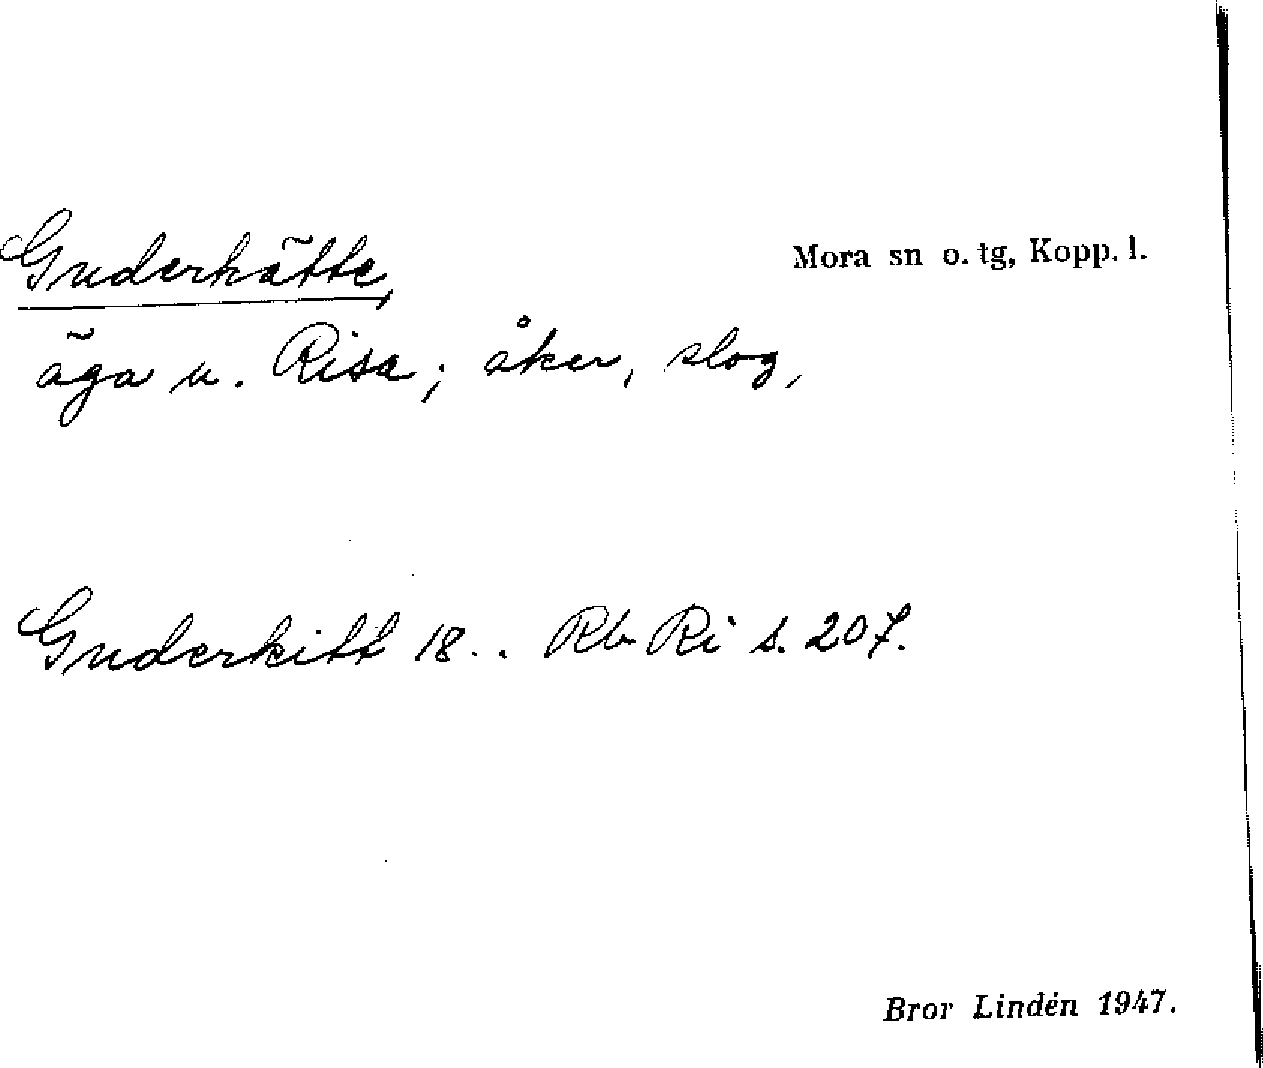 Guderkätte, Mora sn o. tg, Kopp. l.
äga u. Risa; åker, slog,
Guderkitt 18.. Rb Ri s. 207.
Bror Lindén 1947.